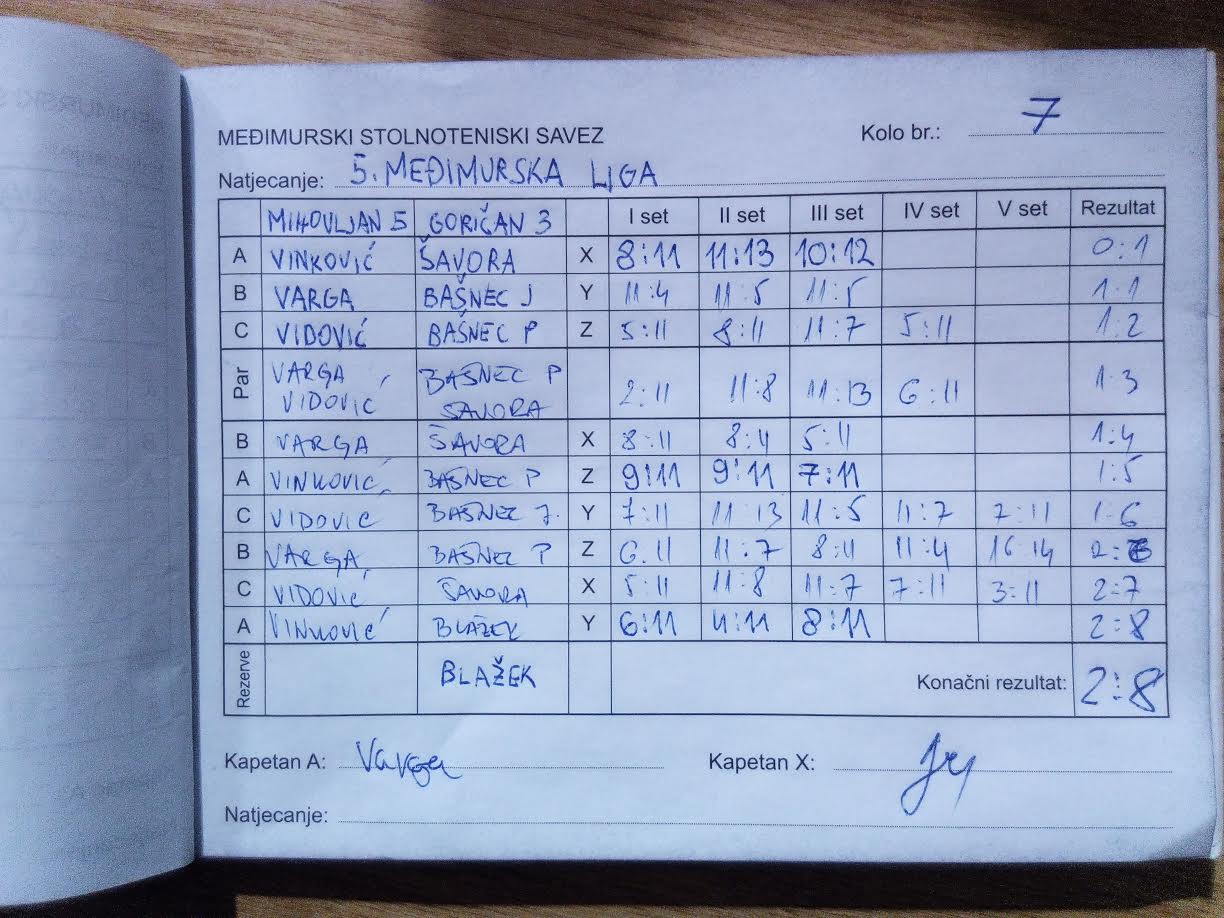 MEĐIMURSKI STOLNOTENISKI SAVEZ
Kolo br.: 7
Natjecanje: 5. MEĐIMURSKA LIGA
MIHOVLJAN 5 GORIČAN 3 I set II set III set IV set V set Rezultat
A VINKOVIĆ ŠAVORA X 8:11 11:13 10:12 0:1
B VARGA BAŠNEC J Y 11:4 11:5 11:5 1:1
C VIDOVIĆ BAŠNEC P Z 5:11 8:11 11:7 5:11 1:2
Par VARGA, BAŠNEC P 2:11 11:8 11:13 6:11 1:3
VIDOVIC SAVORA
B VARGA ŠAVORA X 8:11 8:11 5:11 1:4
A VINKOVIĆ BAŠNEC P Z 9:11 9:11 7:11 1:5
C VIDOVIC BAŠNEC J. Y 7:11 11:13 11:5 11:7 7:11 1:6
B VARGA BAŠNEC P Z 6:11 11:7 8:11 11:4 16:14 2:6
C VIDOVIĆ ŠAVORA X 5:11 11:8 11:7 7:11 3:11 2:7
A VINKOVIĆ BLAŽEK Y 6:11 4:11 8:11 2:8
Rezerve BLAŽEK Konačni rezultat: 2:8
Kapetan A: Varga Kapetan X:
Natjecanje: